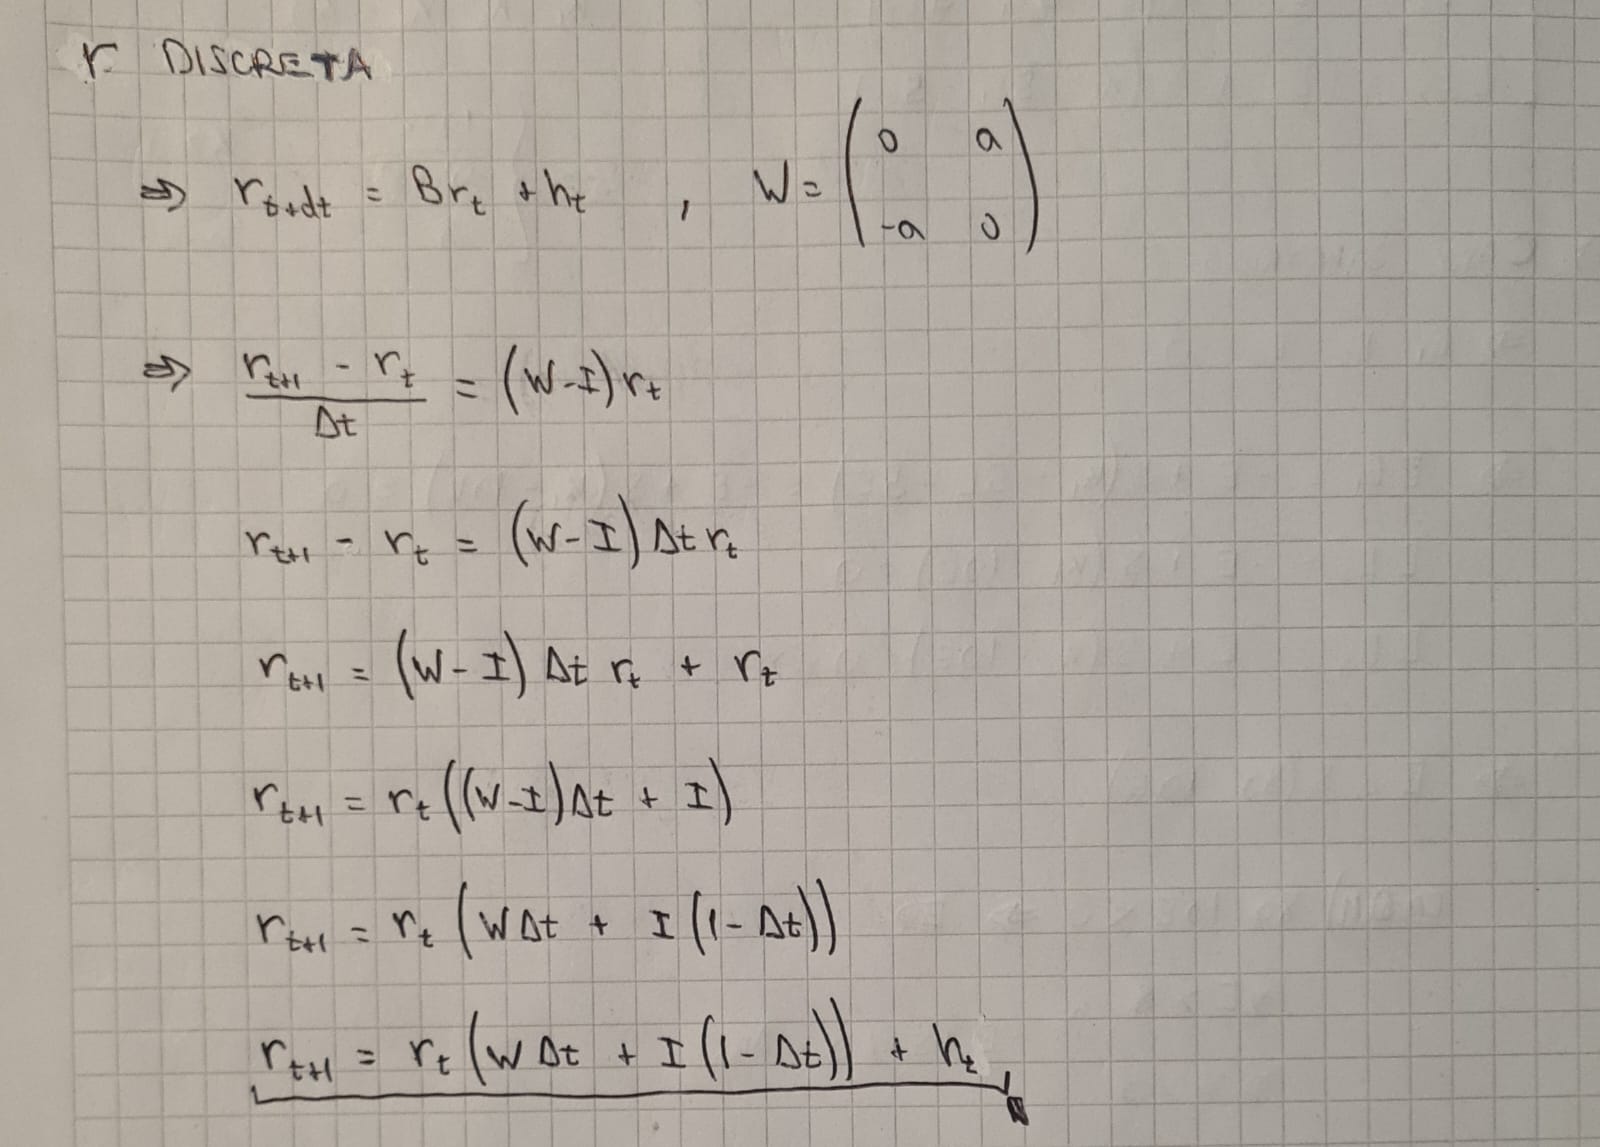 r DISCRETA
⇒ r_{t+dt} = Br_t + h_t , W = \begin{pmatrix} 0 & a \\ -a & 0 \end{pmatrix}
⇒ \frac{r_{t+1} - r_t}{Δt} = (W-I) r_t
r_{t+1} - r_t = (W-I) Δt r_t
r_{t+1} = (W-I) Δt r_t + r_t
r_{t+1} = r_t ((W-I)Δt + I)
r_{t+1} = r_t (WΔt + I(1-Δt))
r_{t+1} = r_t (WΔt + I(1-Δt)) + h_t